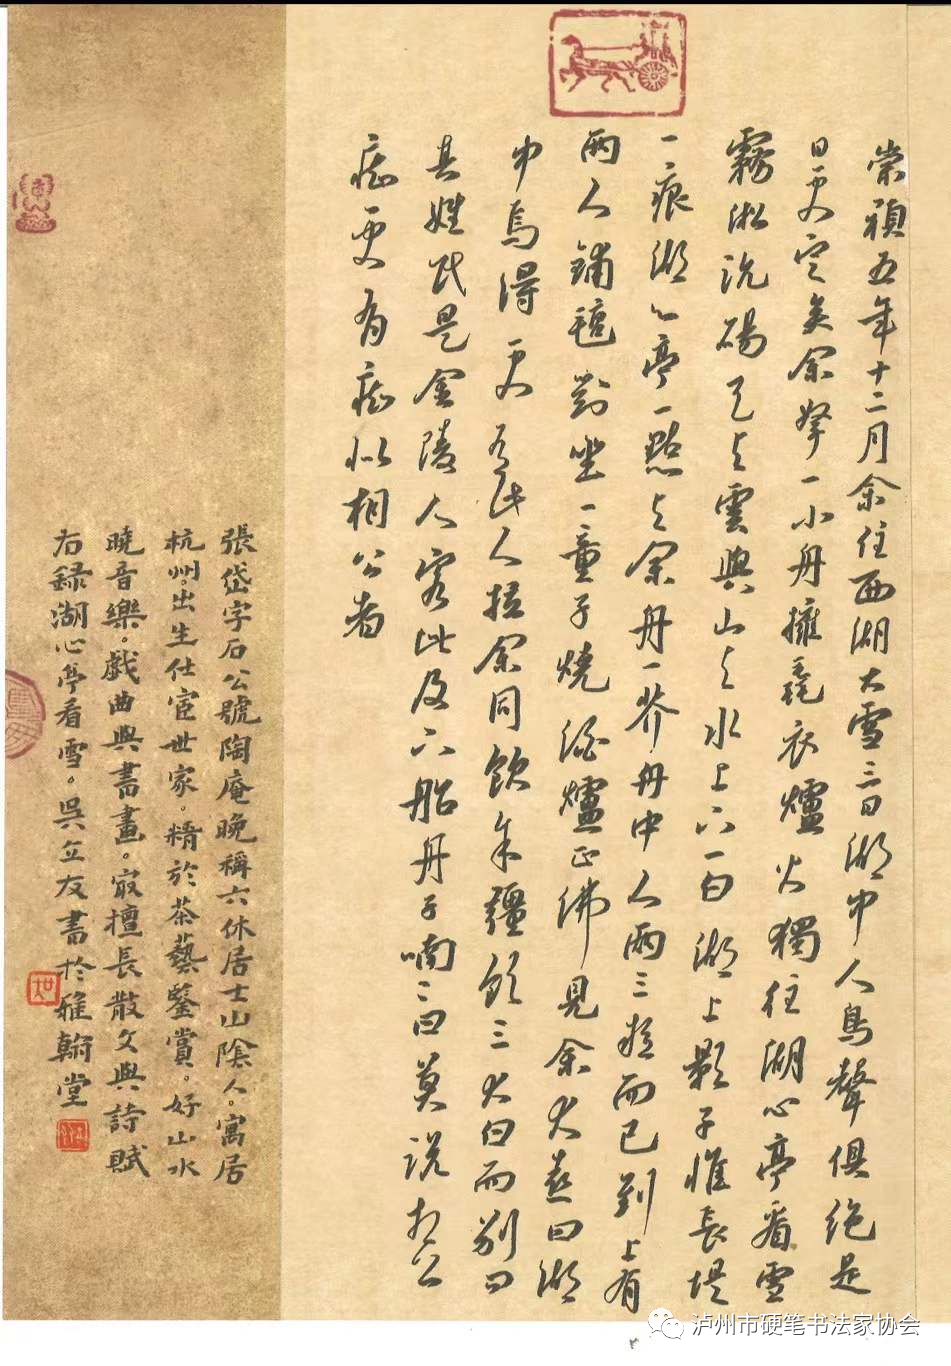 崇禎五年十二月余住西湖大雪三日湖中人鳥聲俱絕是
日更定矣余拏一小舟擁毳衣爐火獨往湖心亭看雪
霧淞沆碭天与雲與山与水上下一白湖上影子惟長堤
一痕湖心亭一點与余舟一芥舟中人兩三粒而已到上有
兩人鋪氈對坐一童子燒酒爐正沸見余大喜曰湖
中焉得更有此人拉余同飲余彊飲三大白而別問
其姓氏是金陵人客此及下船舟子喃〻曰莫說相公
癡更有癡似相公者
張岱字石公號陶庵晚稱六休居士山陰人。寓居
杭州。出生仕宦世家。精於茶藝鑒賞。好山水
曉音樂。戯曲與書畫。㝡擅長散文與詩賦
右録湖心亭看雪。吳立友書於雅翰堂
泸州市硬笔书法家协会